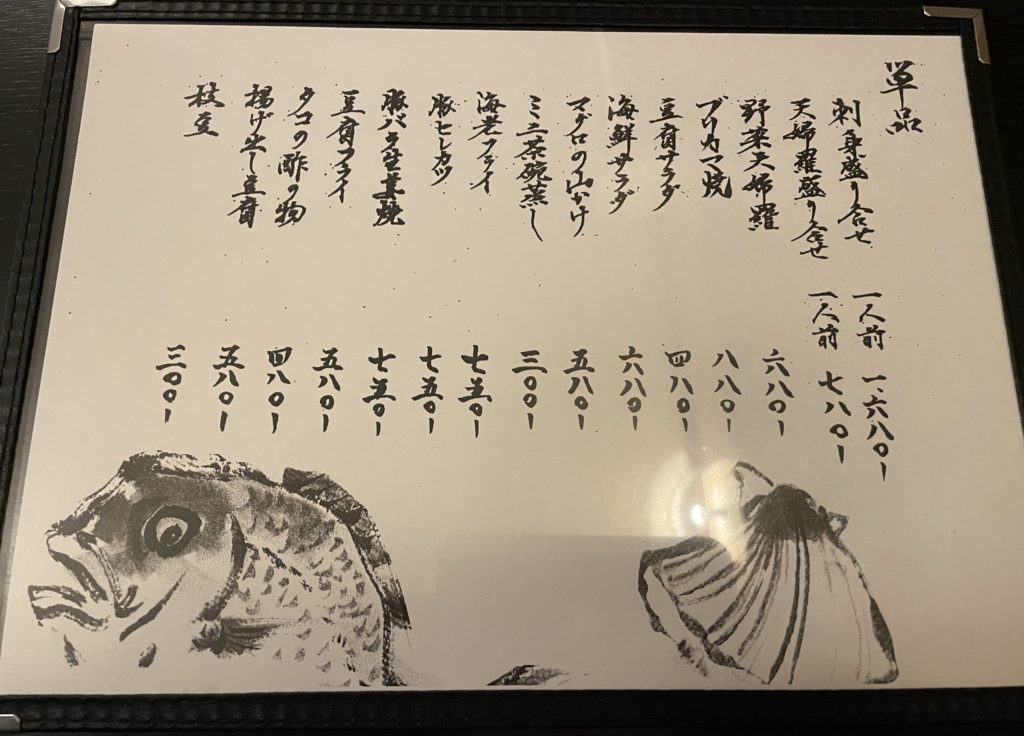 単品
刺身盛り合せ 一人前 一、六八〇ー
天婦羅盛り合せ 一人前 七八〇ー
野菜天婦羅 六八〇ー
ブリカマ焼 八八〇ー
豆腐サラダ 四八〇ー
海鮮サラダ 六八〇ー
マグロの山かけ 五八〇ー
ミニ茶碗蒸し 三〇〇ー
海老フライ 七五〇ー
豚ヒレカツ 七五〇ー
豚バラ生姜焼 七五〇ー
豆腐フライ 五八〇ー
タコの酢の物 四八〇ー
揚げ出し豆腐 五八〇ー
枝豆 三〇〇ー